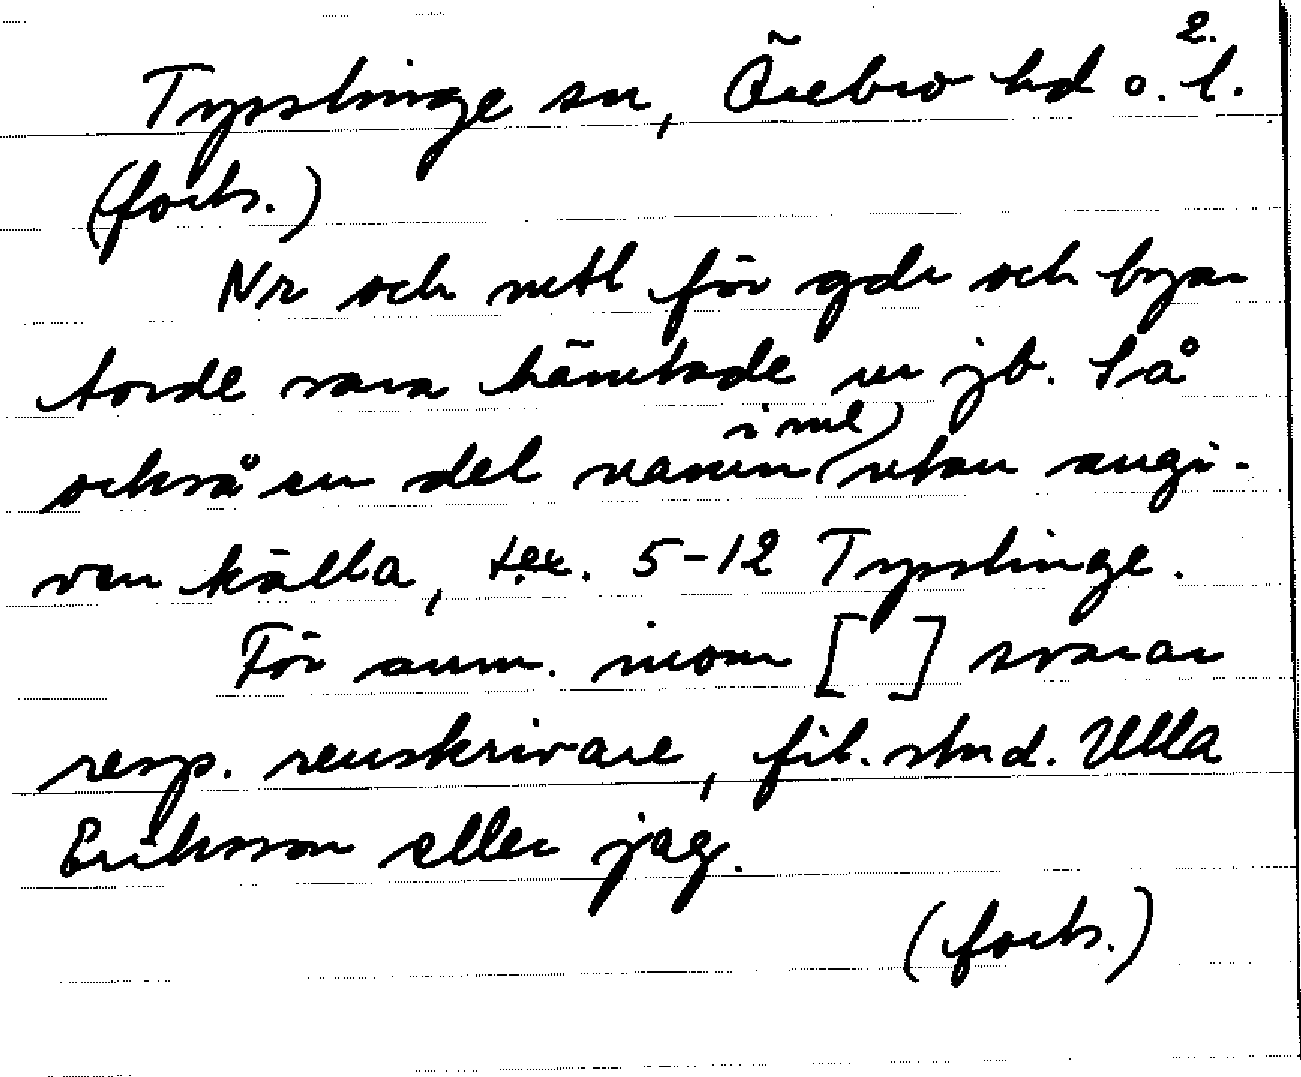 2.
Tysslinge sn, Örebro hd o. l.
(forts.)
Nr och mtl för gdr och byar
torde vara hämtade ur jb. Så
också en del namn (utan angi-
i ml)
ven källa, t.ex. 5-12 Tysslinge.
För anm. inom [ ] svarar
resp. renskrivare, fil. stud. Ulla
Eriksson eller jag.
(forts.)